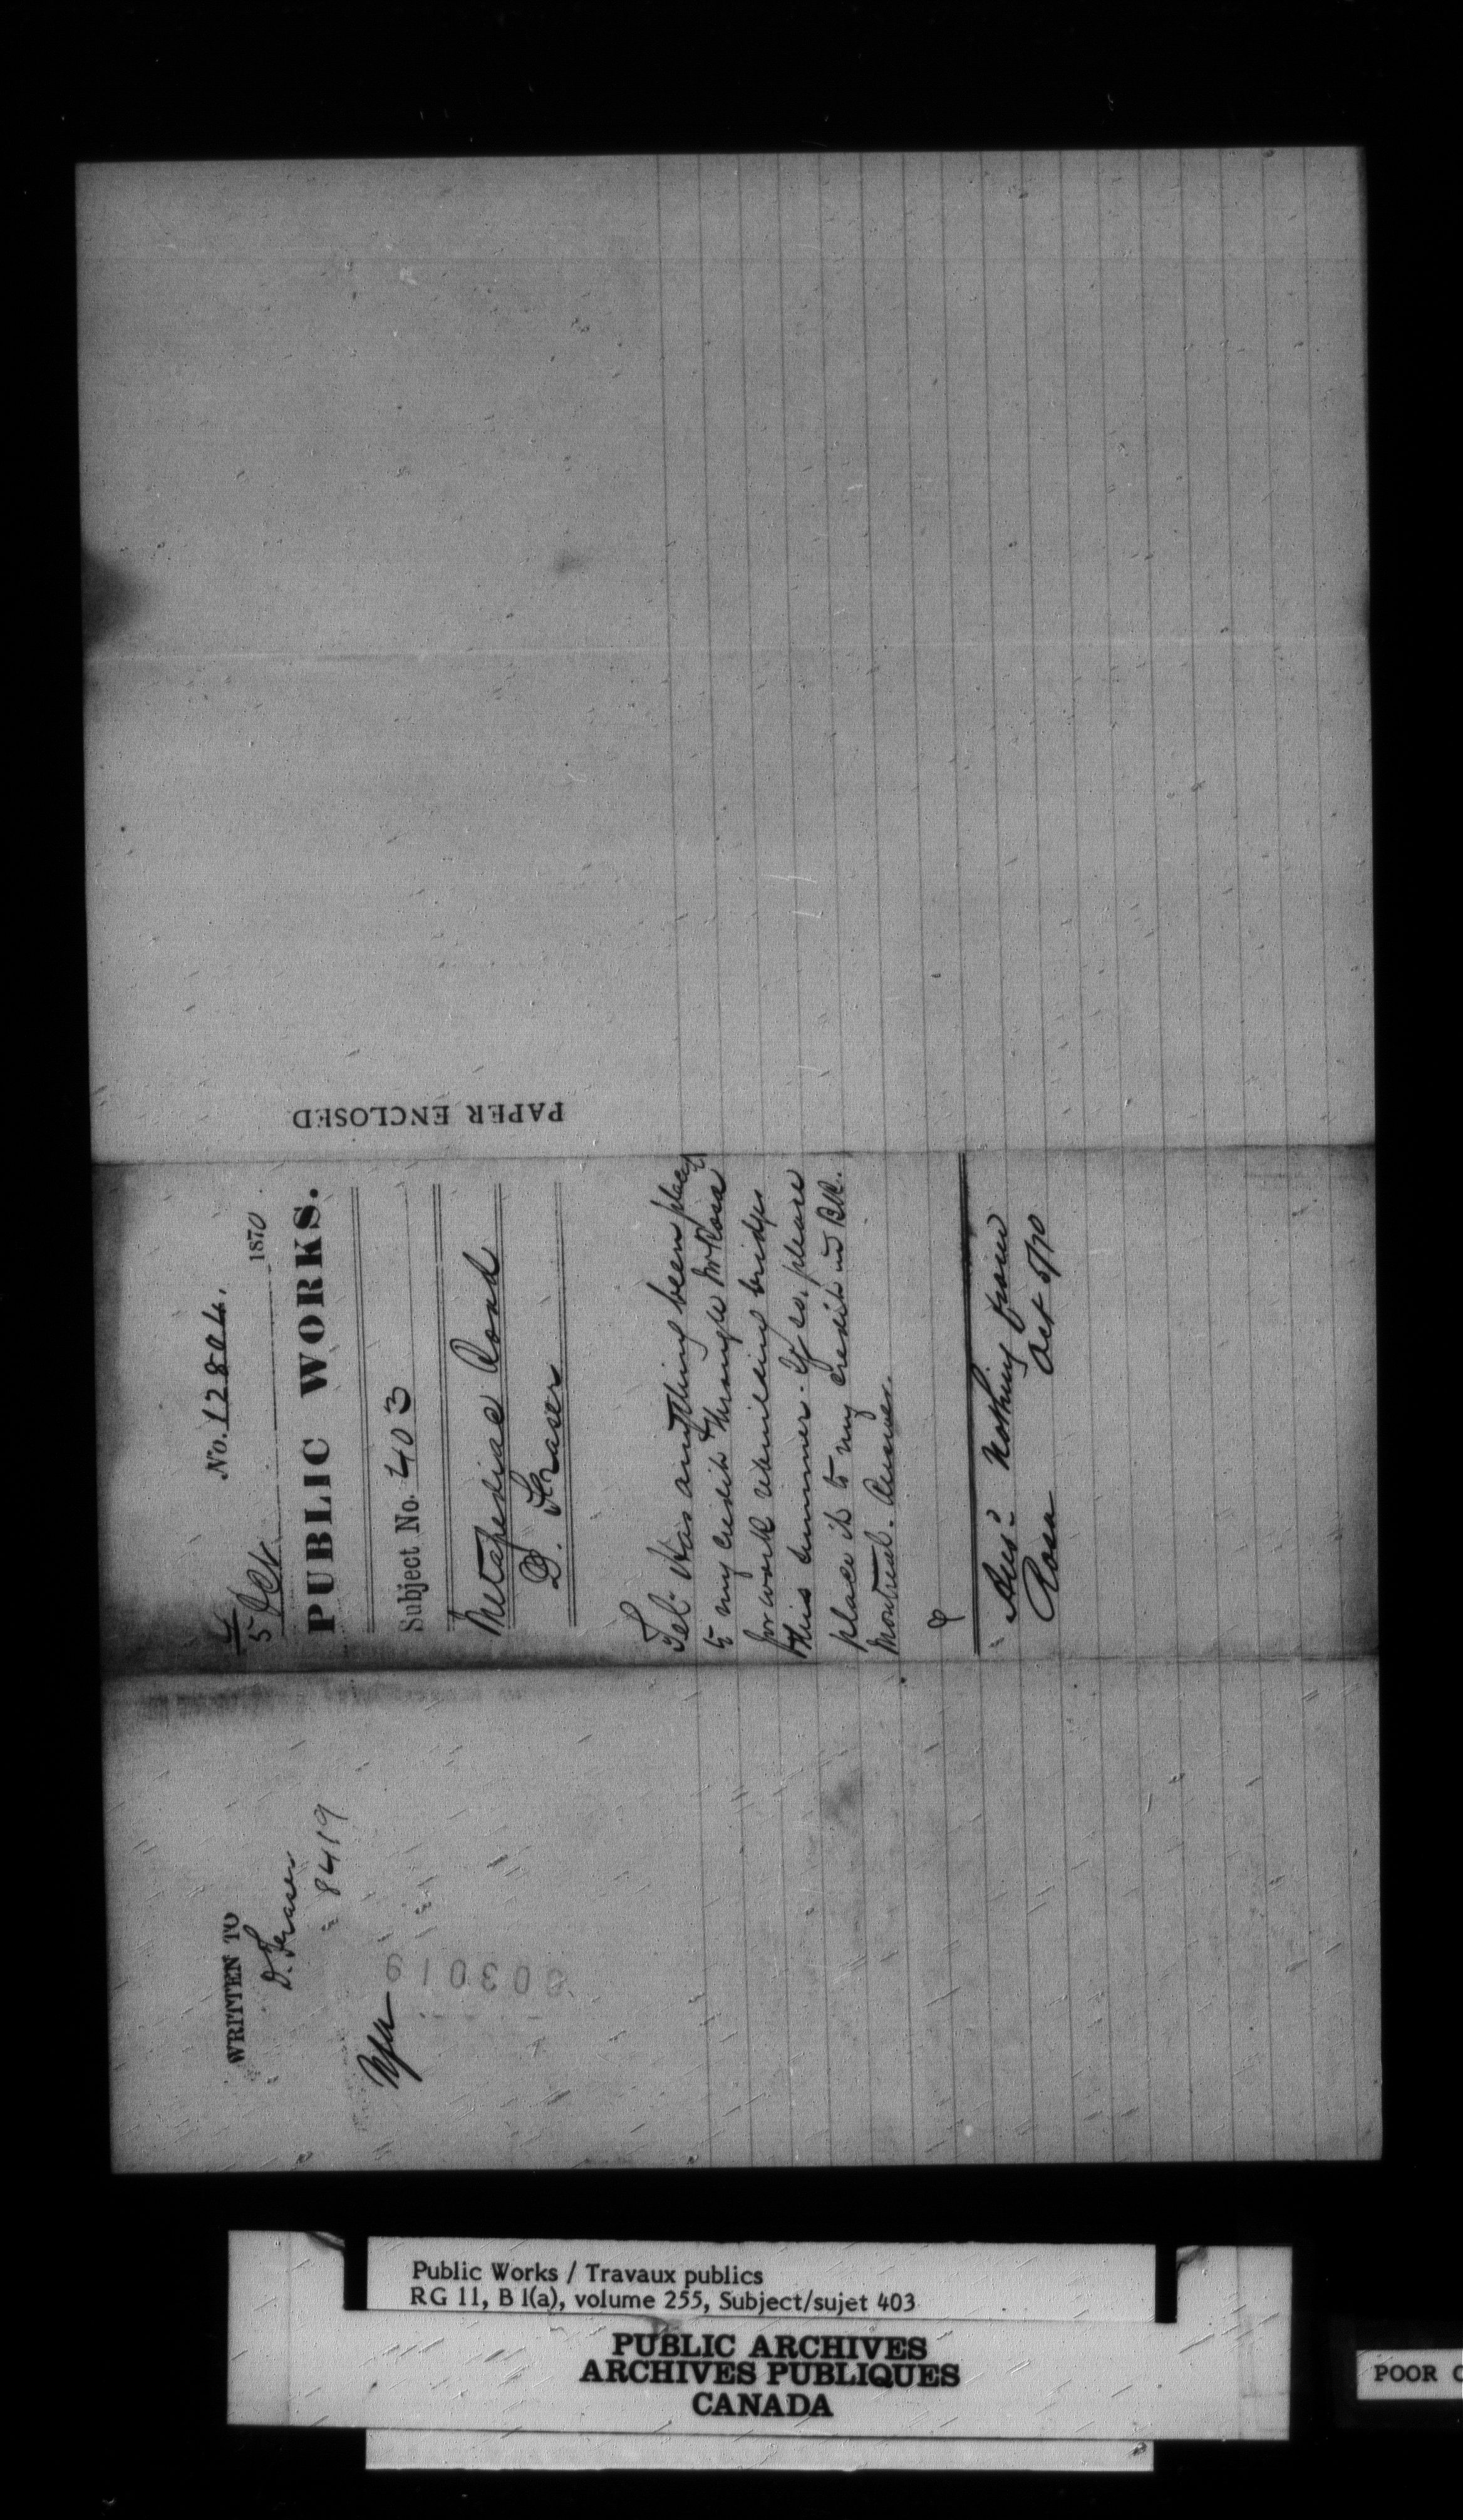 No. 12804.
5 Oct. 1870
PUBLIC WORKS.
Subject No. 403
Metapediac Road
D. Fraser
Tel. Has anything been placed
to my credit through Mr Rosa
for work rebuilding bridges
this summer. If so, please
place it to my credit in Bk.
Montreal. Answer.
Ans: Nothing from
Rosa Oct 5/70
PAPER ENCLOSED
WRITTEN TO
D. Fraser
8419
003019
Public Works / Travaux publics
RG 11, B 1(a), volume 255, Subject/sujet 403
PUBLIC ARCHIVES
ARCHIVES PUBLIQUES
CANADA
POOR